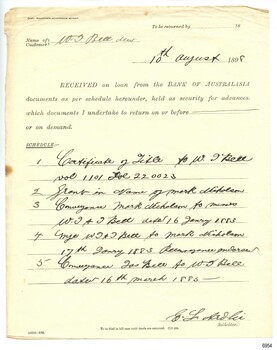 To be returned by 18
Name of Customer W. T. Bell
10th August 1898
RECEIVED on loan from the BANK OF AUSTRALASIA
documents as per schedule hereunder, held as security for advances,
which documents I undertake to return on or before
or on demand.
SCHEDULE—
1 Certificate of Title to W T Bell
vol 1101 Fol 220023
2 Grant in Name of Mark Nicholson
3 Conveyance Mark Nicholson to
W T & J Bell dated 16 Janry 1883
4 Mge W T & J Bell to Mark Nicholson
17th Janry 1883 Reconveyance endorsed
5 Conveyance Jas Bell to W T Bell
dated 16th March 1886
6954